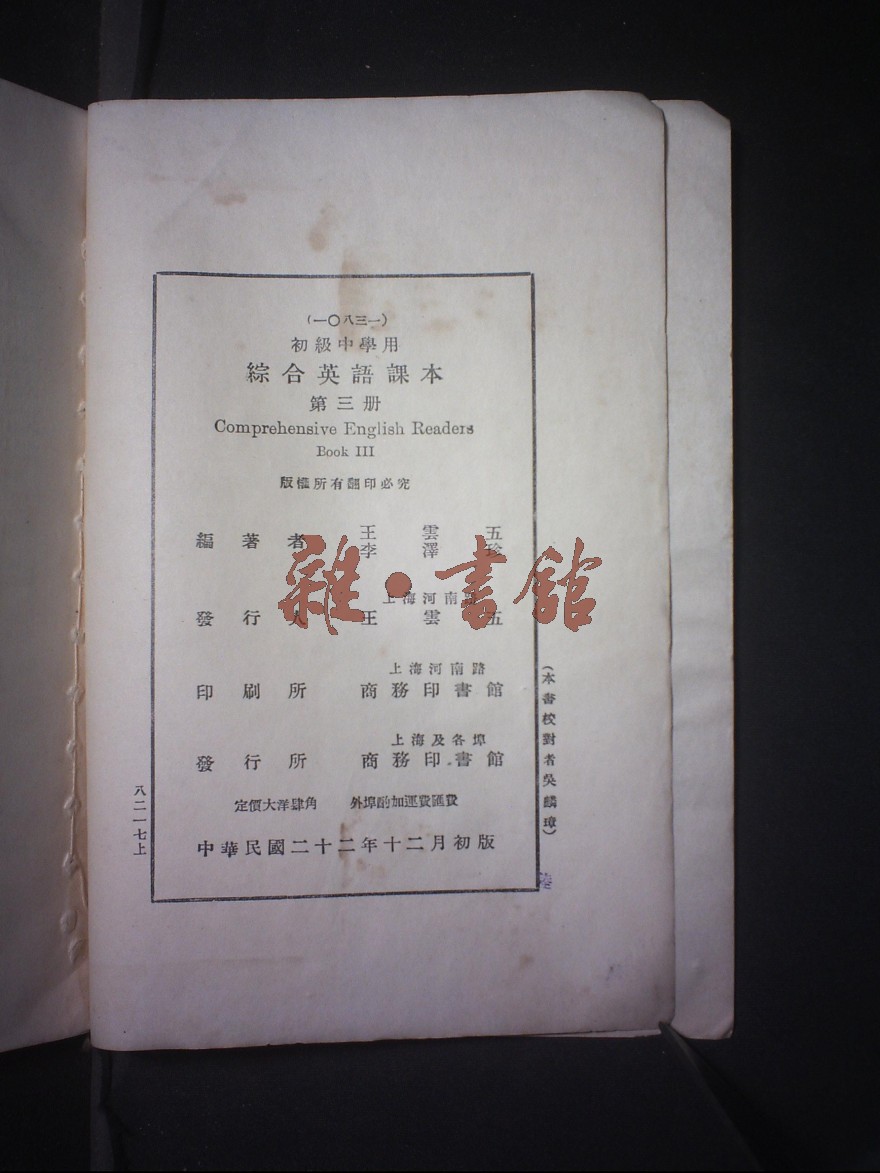 (一〇八三一)
初級中學用
綜合英語課本
第三册
Comprehensive English Readers
Book III
版權所有翻印必究
編著者 王雲五
李澤珍
上海河南路
發行人 王雲五
上海河南路
印刷所 商務印書館
上海及各埠
發行所 商務印書館
定價大洋肆角 外埠酌加運費匯費
中華民國二十二年十二月初版
(本書校對者吳麟璋)
八二一七上
雜·書館